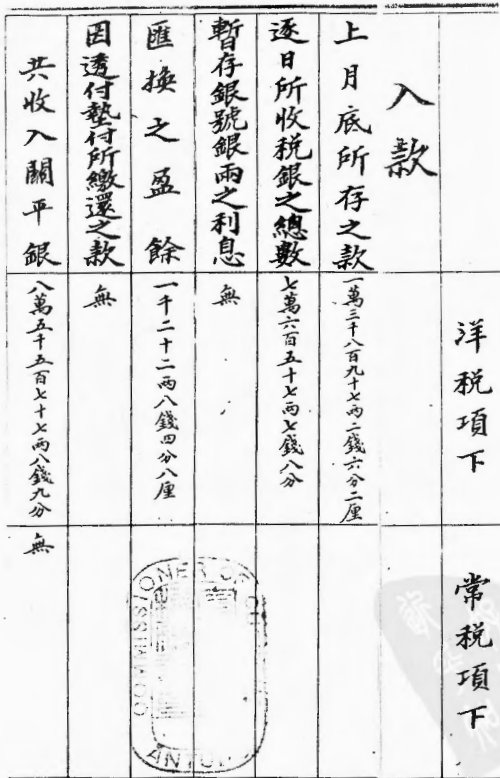 洋税項下
常税項下
入款
上月底所存之款
一萬三千八百九十七兩二錢六分二厘
逐日所收税銀之總數
七萬六百五十七兩七錢八分
暫存銀號銀兩之利息
無
匯換之盈餘
一千二十二兩八錢四分八厘
因透付墊付所繳還之款
無
共收入關平銀
八萬五千五百七十七兩八錢九分
無
COMMISSIONER OF